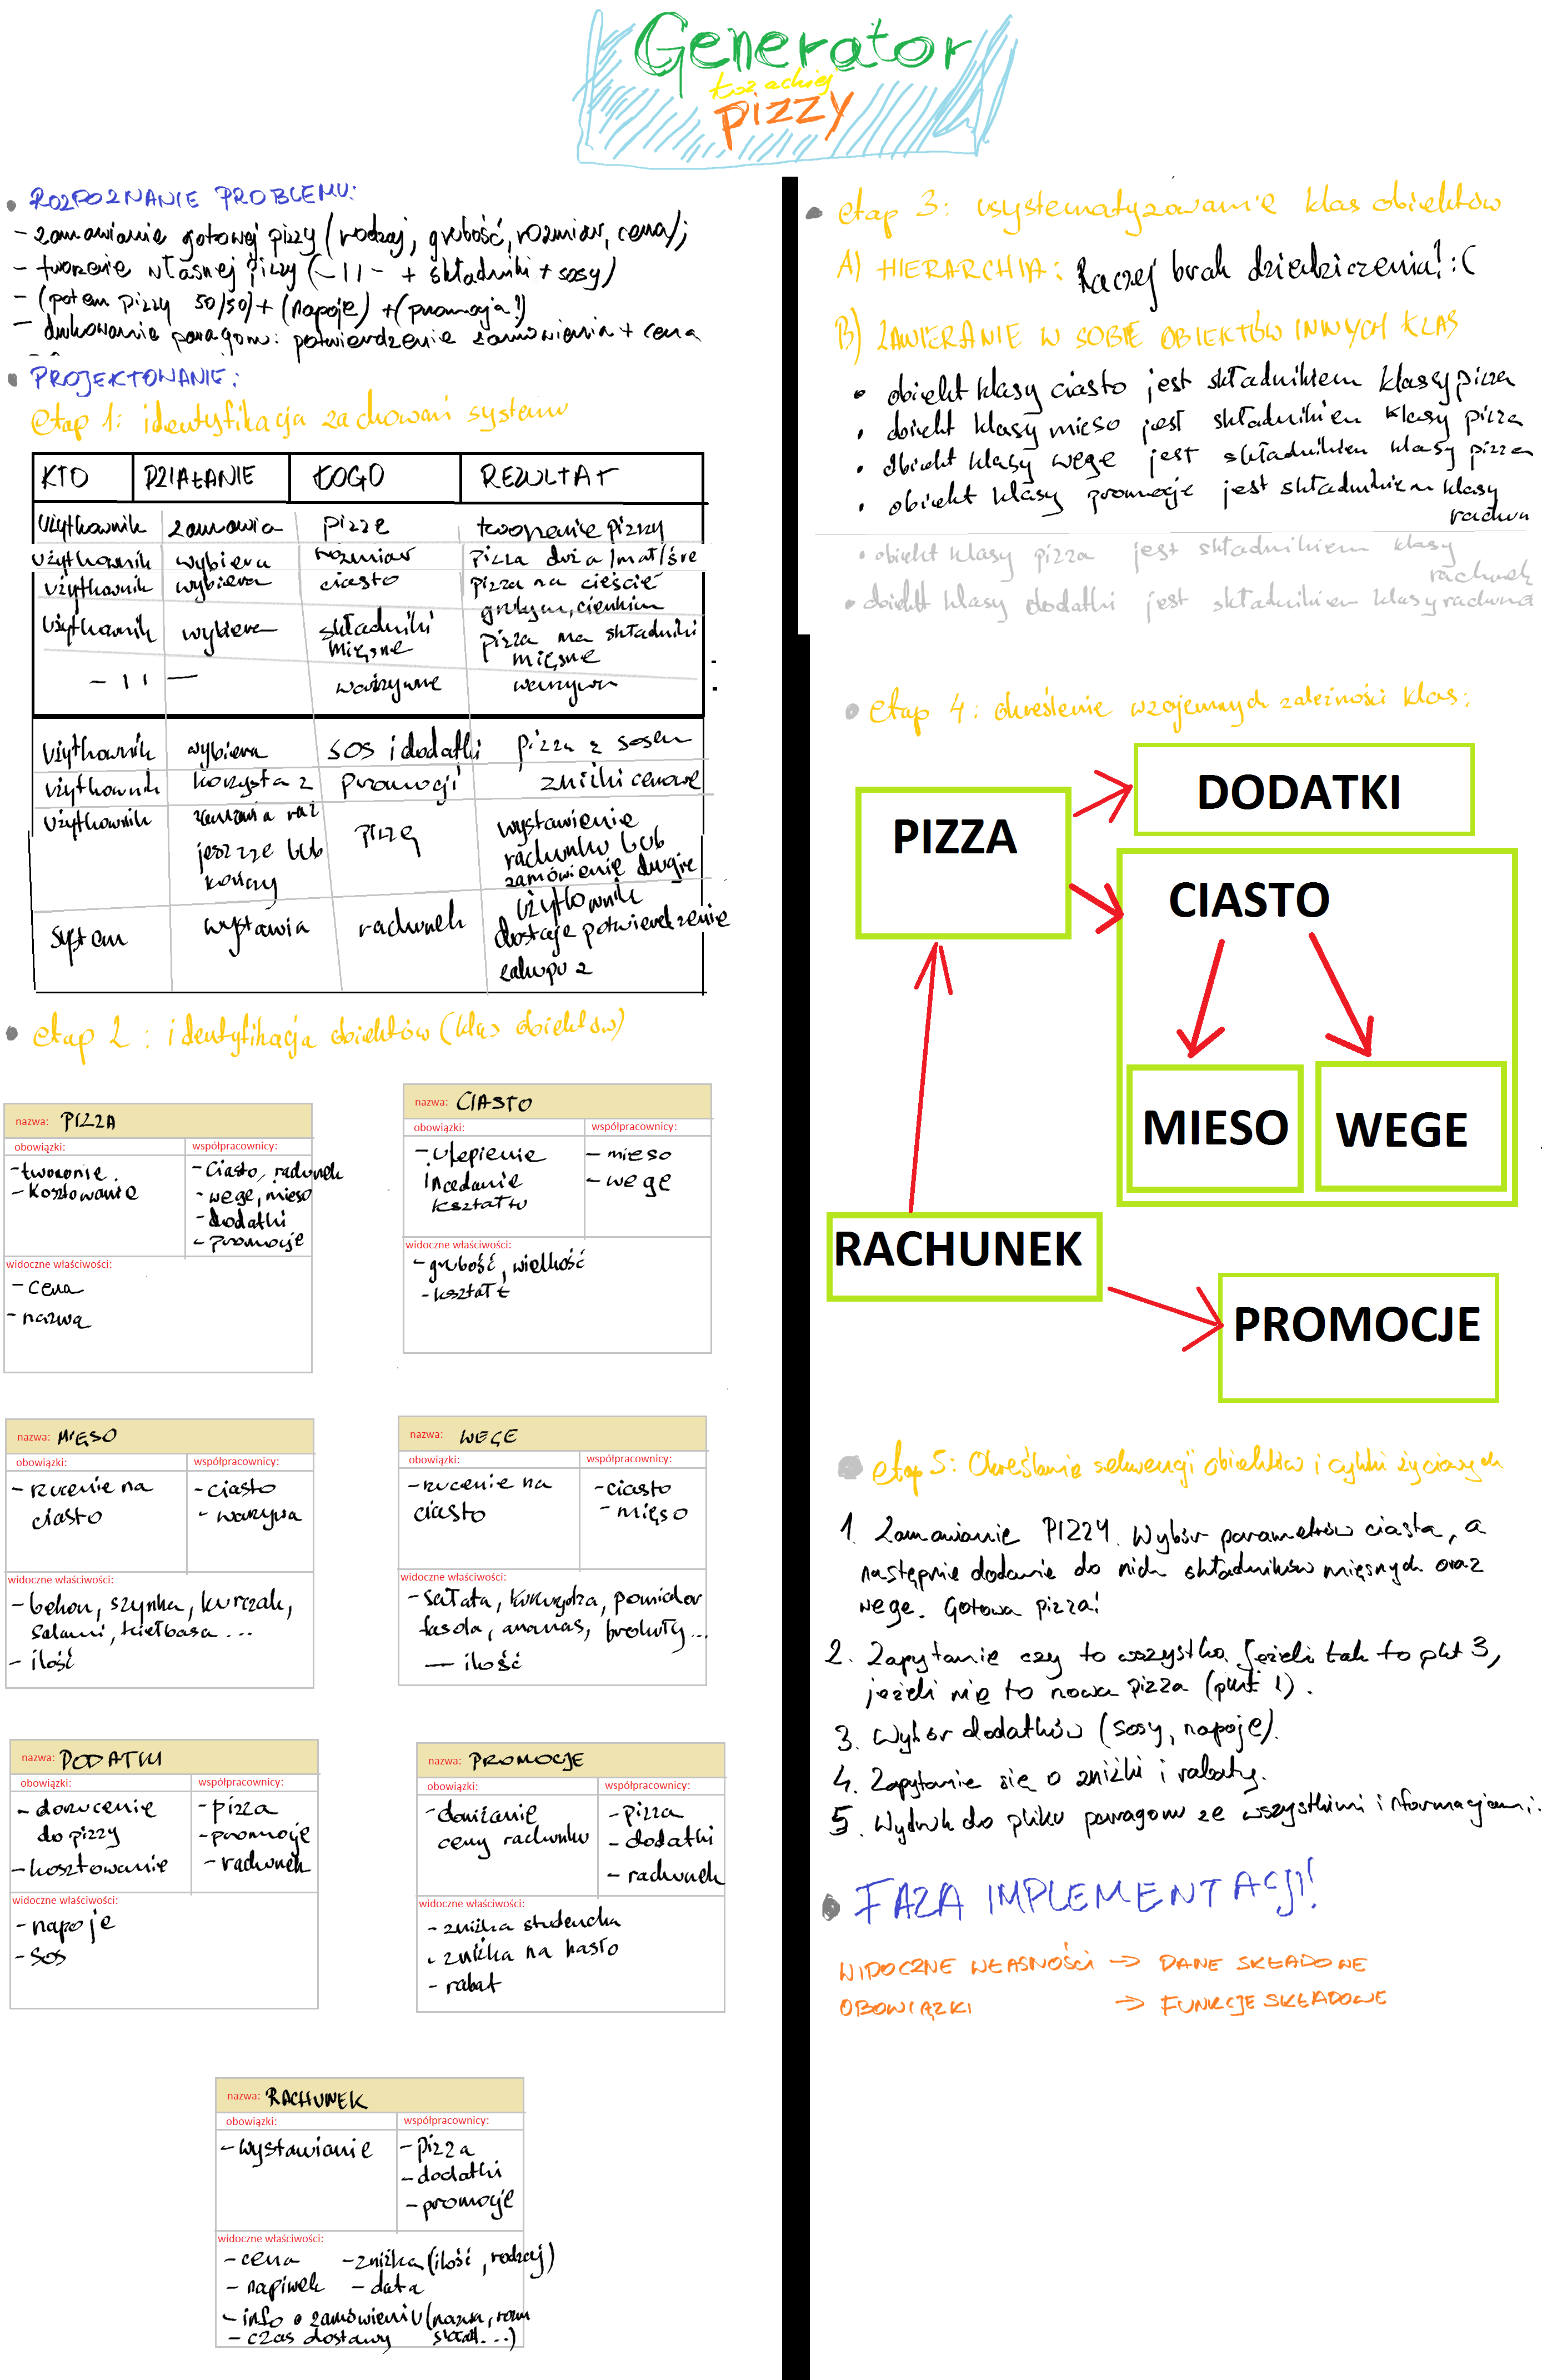 Generator
kozackiej
pizzy
ROZPOZNANIE PROBLEMU:
- zamawianie gotowej pizzy (rodzaj, grubość, rozmiar, cena);
- tworzenie własnej pizzy (-||- + składniki + sosy)
- (potem pizzy 50/50) + (napoje) + (promocja!)
- drukowanie paragonu: potwierdzenie zamówienia + cena
PROJEKTOWANIE:
etap 1: identyfikacja zachowań systemu
KTO DZIAŁANIE KOGO REZULTAT
Użytkownik zamawia pizze tworzenie pizzy
użytkownik wybiera rozmiar pizza duża/mał/śre
użytkownik wybiera ciasto pizza na cieście
grubym, cienkim
użytkownik wybiera składniki mięsne pizza ma składniki mięsne
- || - warzywne warzywa
użytkownik wybiera sos i dodatki pizza z sosem
użytkownik korzysta z promocji zniżki cenowe
użytkownik zamawia raz jeszcze lub kończy pizzę wystawienie rachunku lub zamówienie drugie
system wystawia rachunek użytkownik dostaje potwierdzenie zakupu z
etap 2 : identyfikacja obiektów (klas obiektów)
nazwa: PIZZA
obowiązki: współpracownicy:
- tworzenie. - ciasto, rachunek
- kosztowanie - wege, mieso
- dodatki
- promocje
widoczne właściwości:
- cena
- nazwa
nazwa: CIASTO
obowiązki: współpracownicy:
- ulepienie - mieso
i nadanie - wege
kształtu
widoczne właściwości:
- grubość, wielkość
- kształt
nazwa: MIĘSO
obowiązki: współpracownicy:
- rzucenie na - ciasto
ciasto - warzywa
widoczne właściwości:
- bekon, szynka, kurczak,
salami, kiełbasa ...
- ilość
nazwa: WEGE
obowiązki: współpracownicy:
- rzucenie na - ciasto
ciasto - mięso
widoczne właściwości:
- sałata, kukurydza, pomidor
fasola, ananas, brokuły...
- ilość
nazwa: DODATKI
obowiązki: współpracownicy:
- dorzucenie - pizza
do pizzy - promocje
- kosztowanie - rachunek
widoczne właściwości:
- napoje
- sos
nazwa: PROMOCJE
obowiązki: współpracownicy:
- obniżanie - pizza
ceny rachunku - dodatki
- rachunek
widoczne właściwości:
- zniżka studencka
- zniżka na hasło
- rabat
nazwa: RACHUNEK
obowiązki: współpracownicy:
- wystawianie - pizza
- dodatki
- promocje
widoczne właściwości:
- cena - zniżka (ilość, rodzaj)
- napiwek - data
- info o zamówieniu (nazwa, rozm
- czas dostawy skład...)
etap 3: usystematyzowanie klas obiektów
A) HIERARCHIA: Raczej brak dziedziczenia! :(
B) ZAWIERANIE W SOBIE OBIEKTÓW INNYCH KLAS
• obiekt klasy ciasto jest składnikiem klasy pizza
• obiekt klasy mieso jest składnikiem klasy pizza
• obiekt klasy wege jest składnikiem klasy pizza
• obiekt klasy promocje jest składnikiem klasy
rachun
• obiekt klasy pizza jest składnikiem klasy
rachunek
• obiekt klasy dodatki jest składnikiem klasy rachunek
etap 4: określenie wzajemnych zależności klas:
DODATKI
PIZZA
CIASTO
MIESO WEGE
RACHUNEK
PROMOCJE
etap 5: Określanie sekwencji obiektów i cykli życiowych
1. Zamawianie PIZZY. Wybór parametrów ciasta, a
następnie dodanie do nich składników mięsnych oraz
wege. Gotowa pizza!
2. Zapytanie czy to wszystko. Jeżeli tak to pkt 3,
jeżeli nie to nowa pizza (pkt 1).
3. Wybór dodatków (sosy, napoje).
4. Zapytanie się o zniżki i rabaty.
5. Wydruk do pliku paragonu ze wszystkimi informacjami.
FAZA IMPLEMENTACJI!
WIDOCZNE WŁASNOŚCI → DANE SKŁADOWE
OBOWIĄZKI → FUNKCJE SKŁADOWE